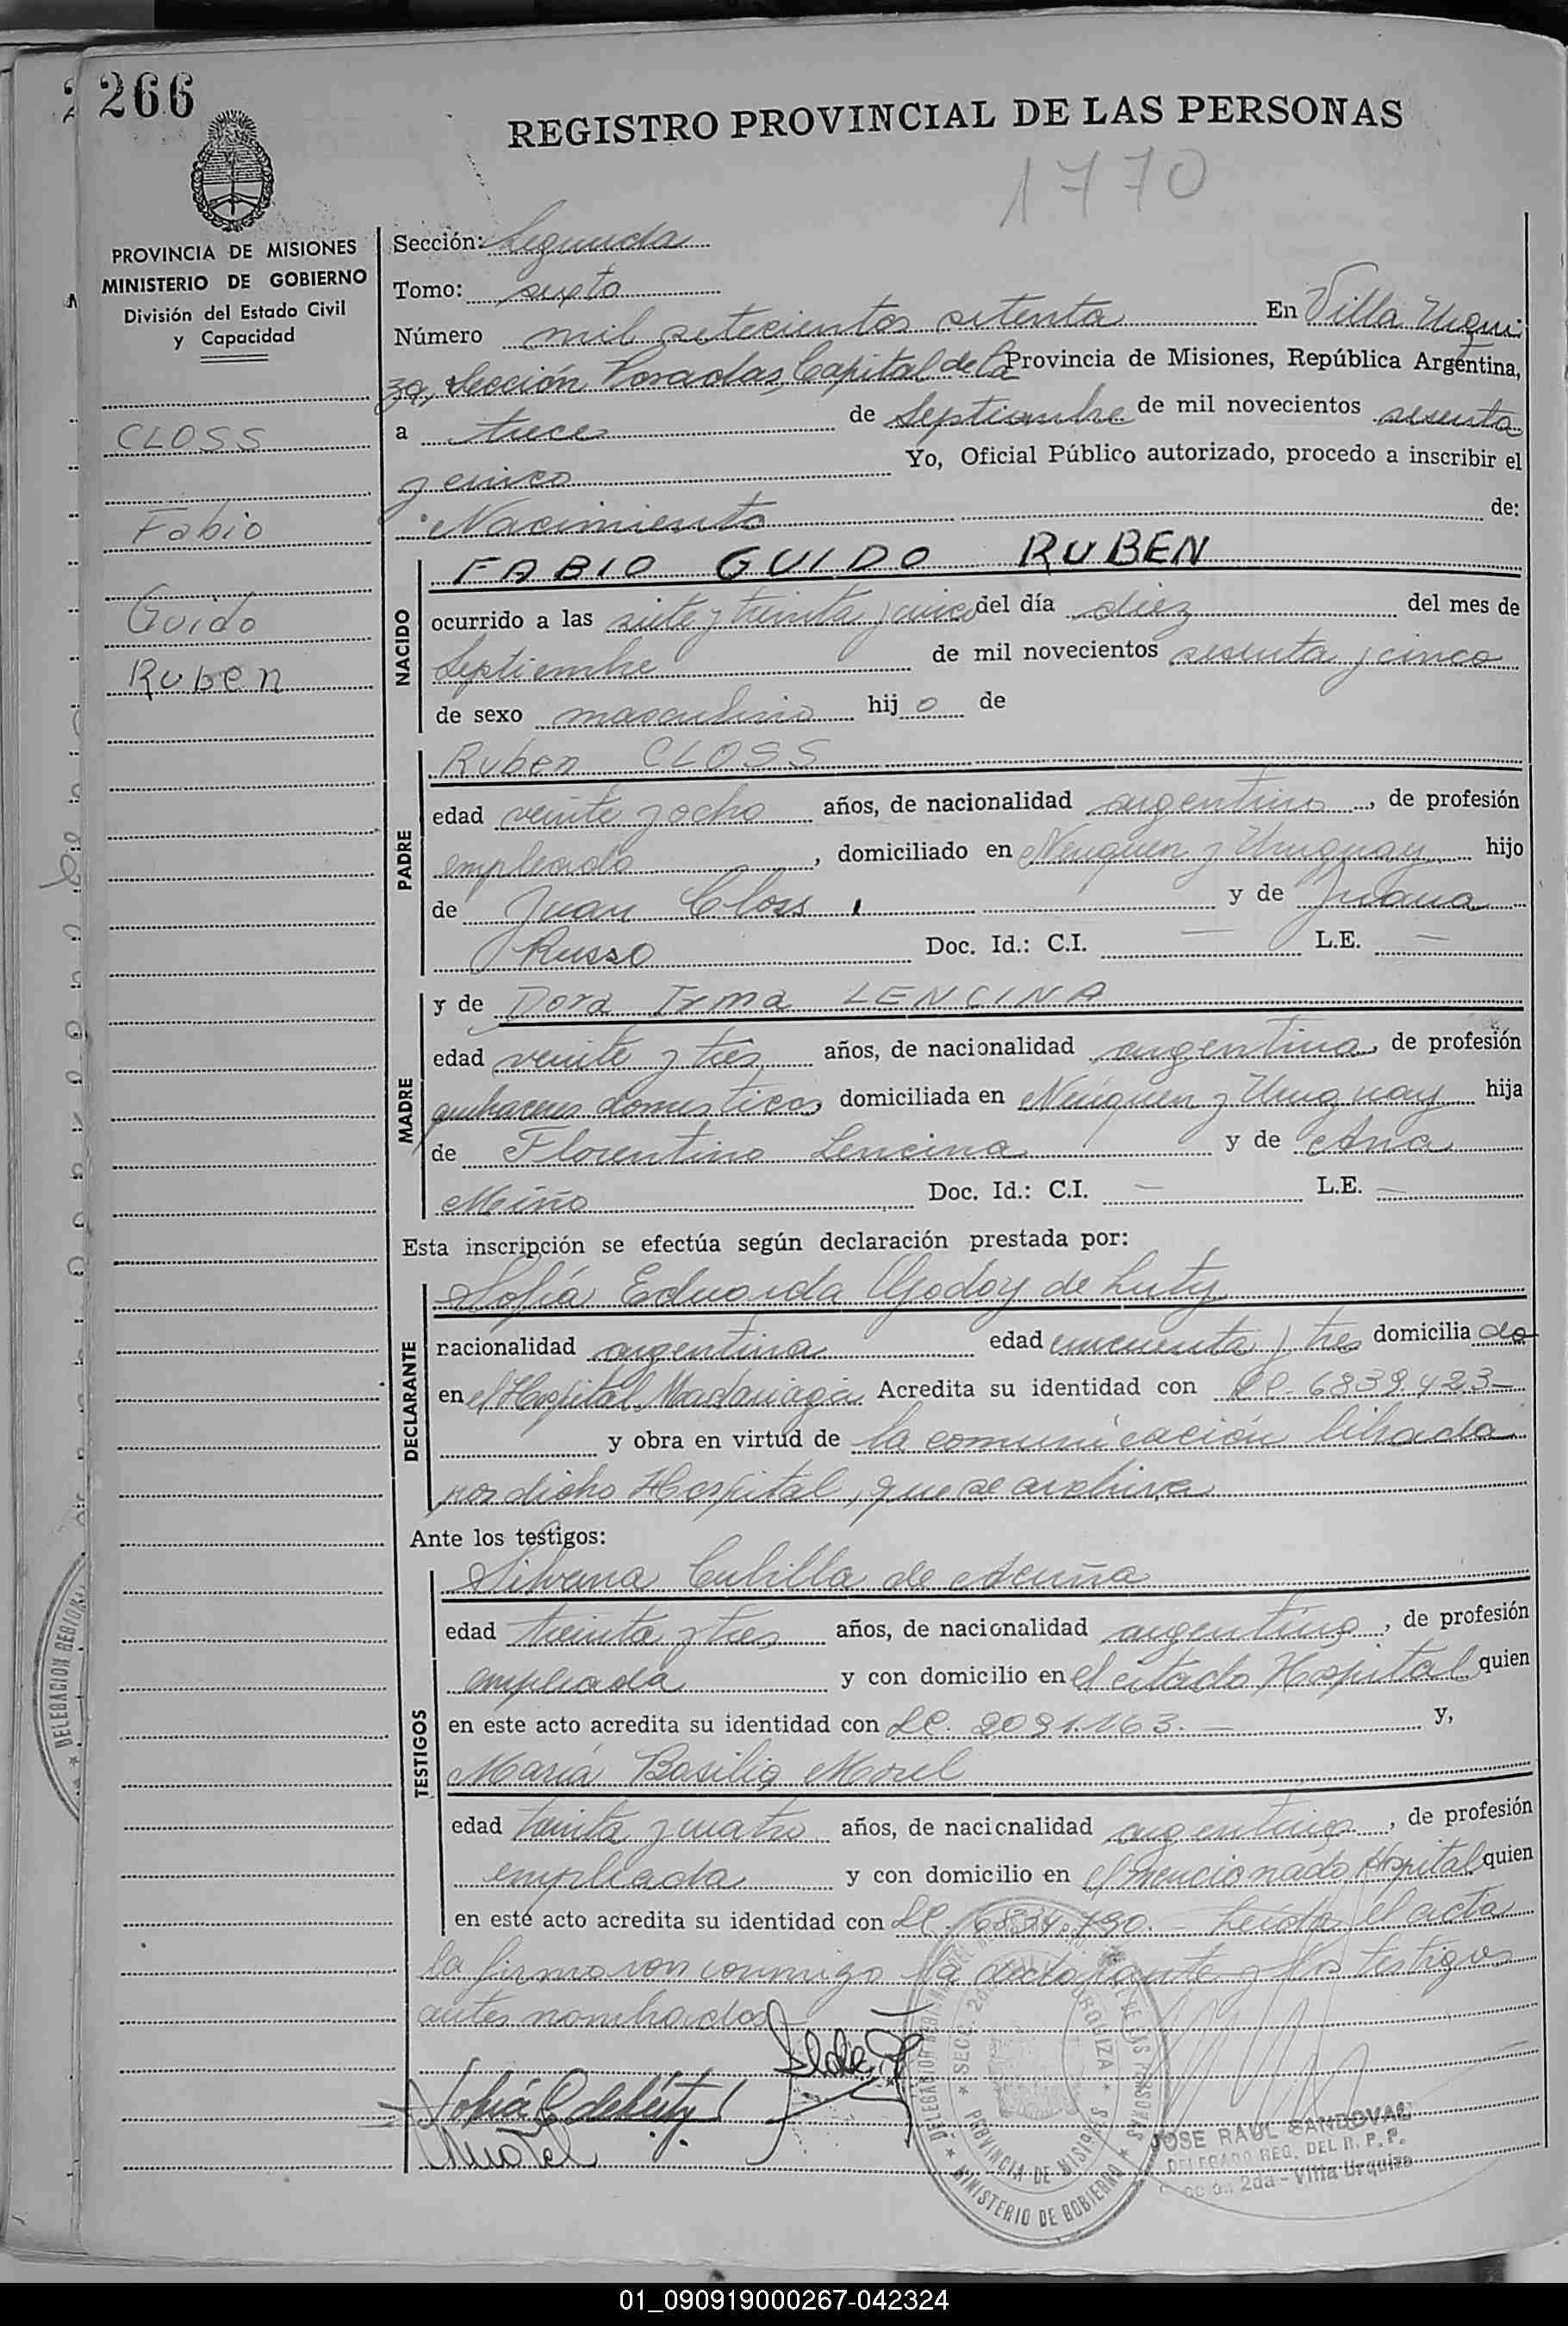 266
REGISTRO PROVINCIAL DE LAS PERSONAS
1770
PROVINCIA DE MISIONES
MINISTERIO DE GOBIERNO
División del Estado Civil
y Capacidad
CLOSS
Fabio
Guido
Ruben
Sección: Segunda
Tomo: sexto
Número mil setecientos setenta En Villa Urqui
za, Sección Posadas, Capital de la Provincia de Misiones, República Argentina,
a trece de Septiembre de mil novecientos sesenta
y cinco Yo, Oficial Público autorizado, procedo a inscribir el
Nacimiento de:
NACIDO
FABIO GUIDO RUBEN
ocurrido a las siete y treinta y cinco del día diez del mes de
Septiembre de mil novecientos sesenta y cinco
de sexo masculino hij o de
PADRE
Ruben CLOSS
edad veinte y ocho años, de nacionalidad argentino, de profesión
empleado, domiciliado en Neuquen y Uruguay hijo
de Juan Closs y de Juana
Russo Doc. Id.: C.I. — L.E. —
MADRE
y de Dora Irma LENCINA
edad veinte y tres años, de nacionalidad argentina, de profesión
quehaceres domesticos, domiciliada en Neuquen y Uruguay hija
de Florentino Lencina y de Ana
Miño Doc. Id.: C.I. — L.E. —
Esta inscripción se efectúa según declaración prestada por:
DECLARANTE
Sofía Eduarda Godoy de Luty
nacionalidad argentina edad cincuenta y tres domicilia da
en el Hospital Madariaga Acredita su identidad con LC. 6839.423—
y obra en virtud de la comunicación librada
por dicho Hospital, que se archiva
Ante los testigos:
TESTIGOS
Silvana Cubilla de Acuña
edad treinta y tres años, de nacionalidad argentina, de profesión
empleada y con domicilio en el citado Hospital quien
en este acto acredita su identidad con LC. 2091.163.— y,
María Basilia Morel
edad treinta y cuatro años, de nacionalidad argentina, de profesión
empleada y con domicilio en el mencionado Hospital quien
en este acto acredita su identidad con LC. Leída el acta
la firmaron conmigo la declarante y los testigos
antes nombrados
Sofía G de Luty
Morel
DELEGACION
SECC. 2da URQUIZA
PROVINCIA DE MISIONES
MINISTERIO DE GOBIERNO
JOSE RAUL SANDOVAL
DELEGADO REG. DEL R. P. P.
Sección 2da - Villa Urquiza
01_090919000267-042324